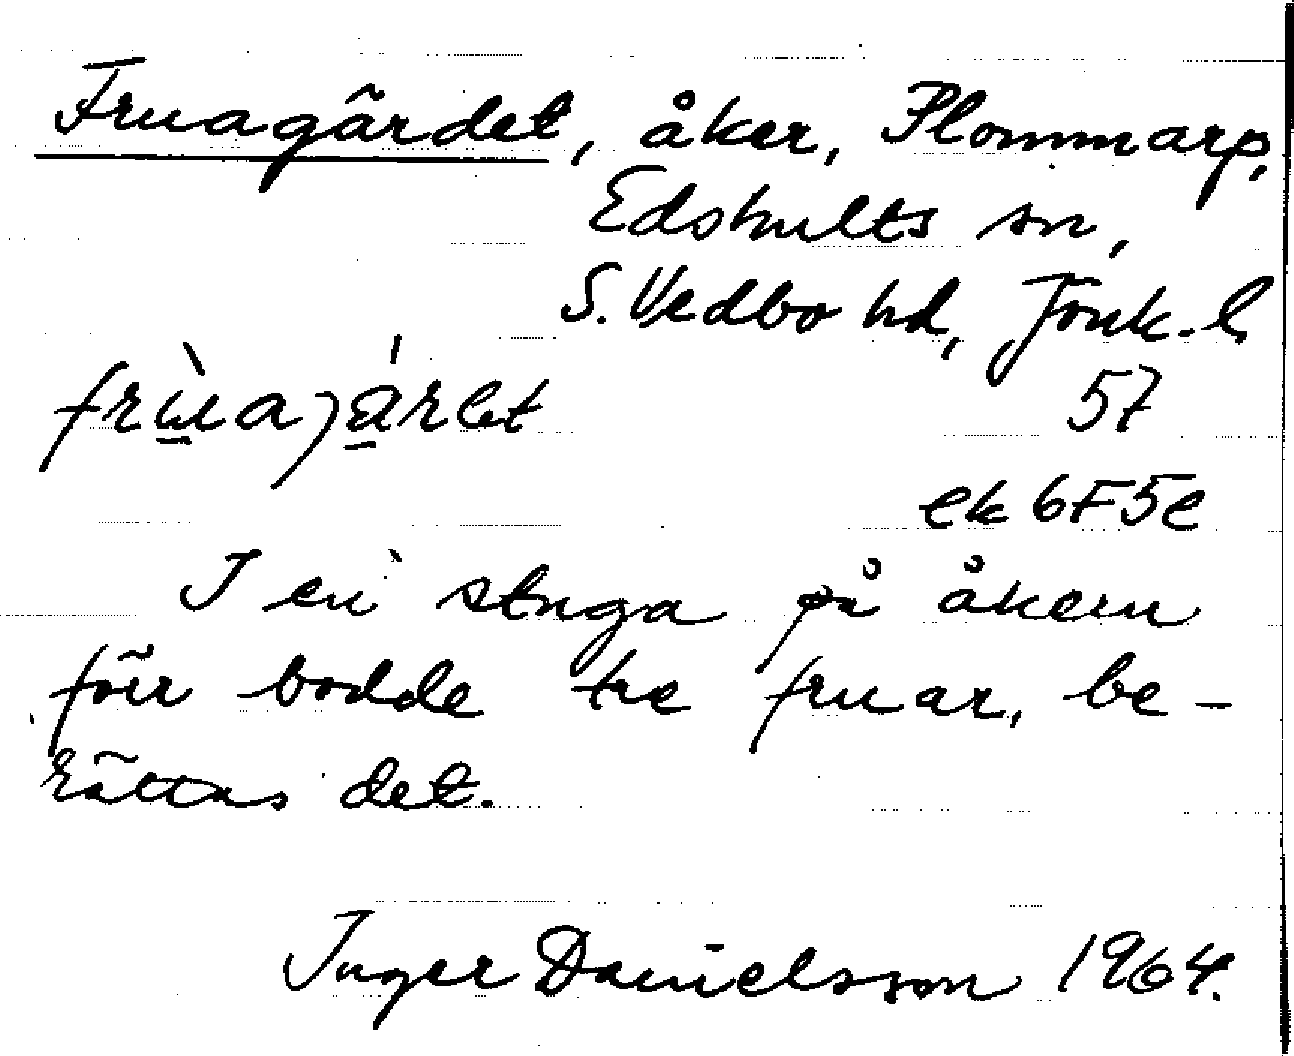 Fruagärdet, åker, Plommarp,
Edshults sn,
S. Vedbo hd, Jönk. l.
57
ek 6F5e
I en stuga på åkern
förr bodde tre fruar, be-
rättas det.
Inger Danielsson 1964.